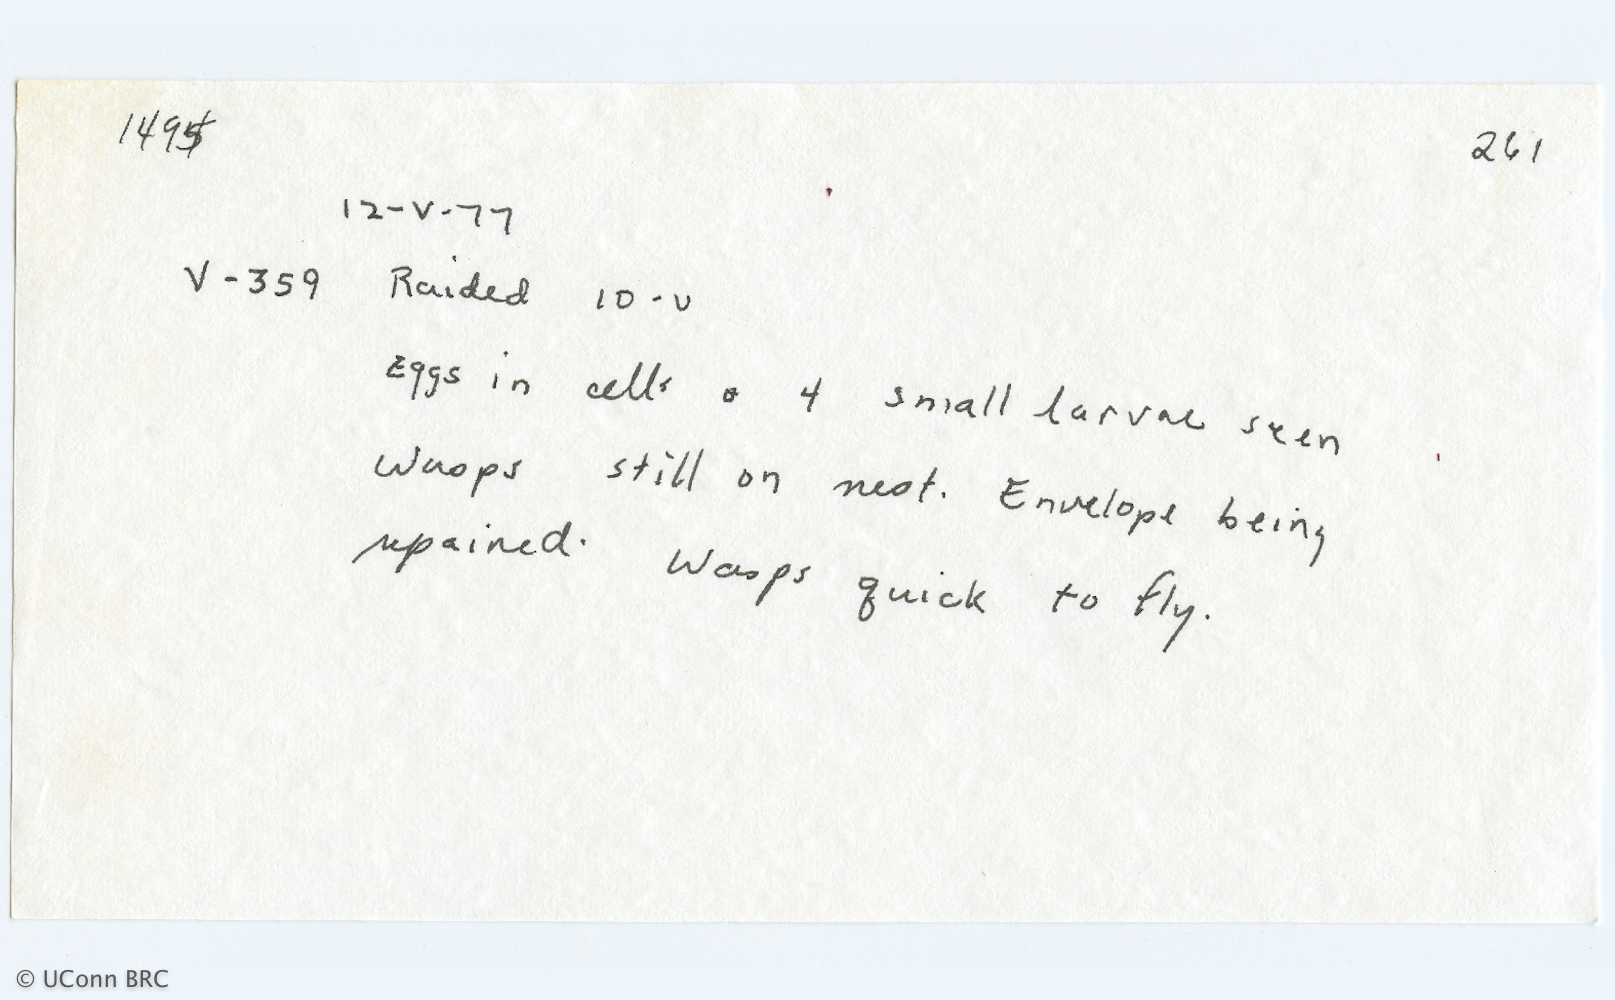 1495
261
12-V-77
V-359 Raided 10-V
Eggs in cells & 4 small larvae seen
Wasps still on nest. Envelope being
repaired. Wasps quick to fly.
© UConn BRC